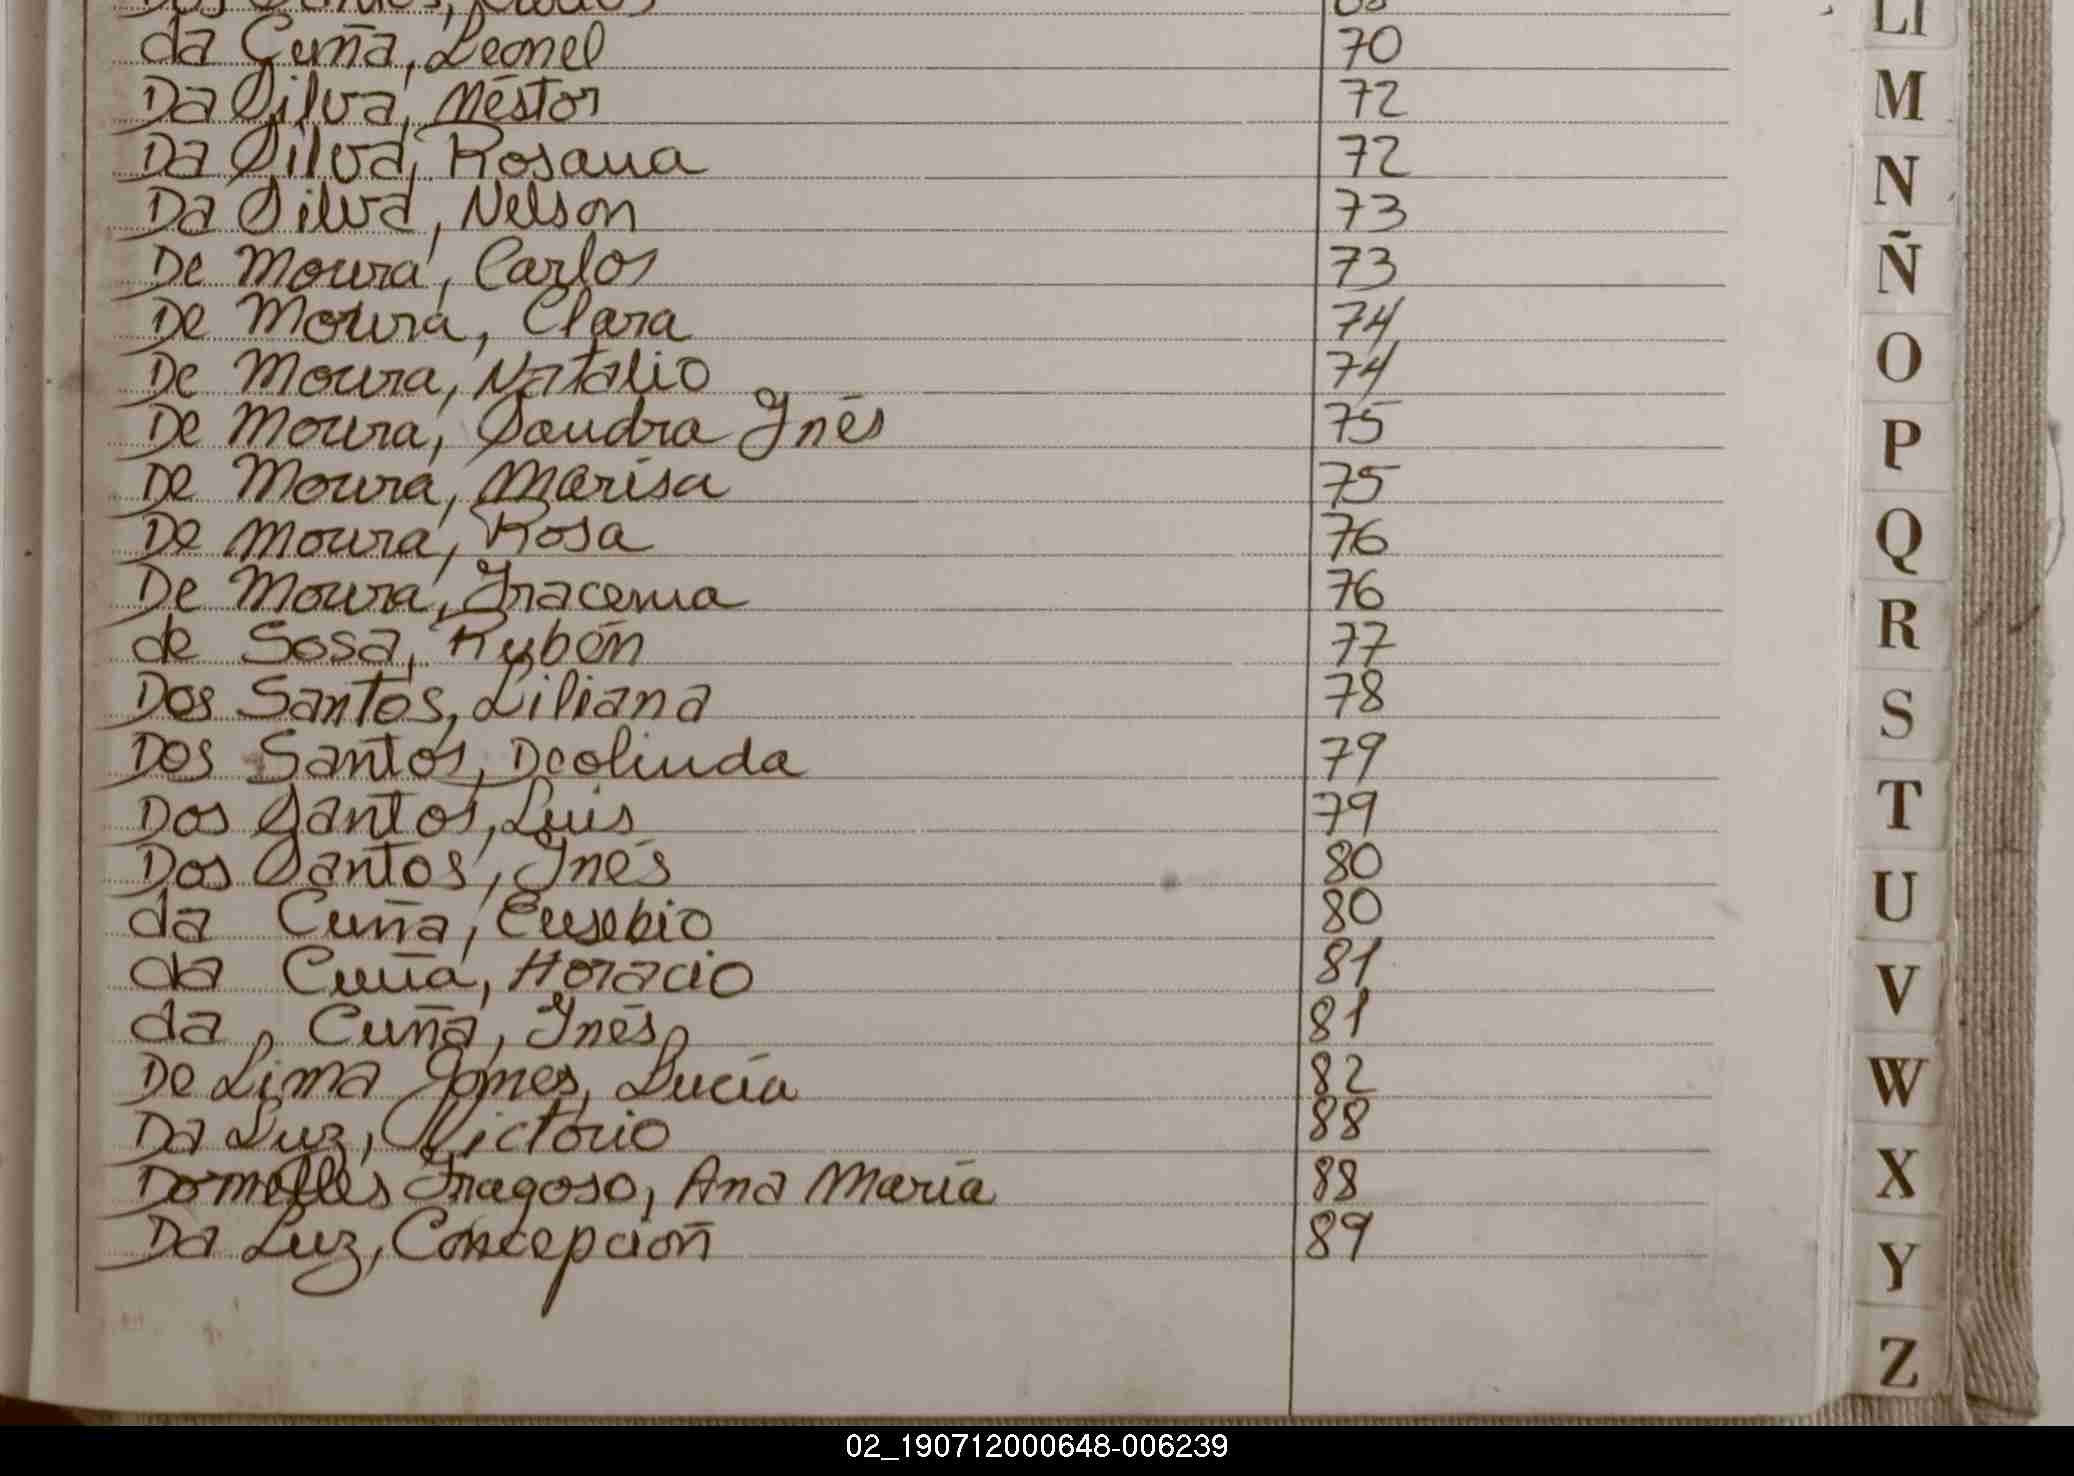 da Cuña, Leonel 70
Da Silva, Néstor 72
Da Silva, Rosana 72
Da Silva, Nelson 73
De Moura, Carlos 73
De Moura, Clara 74
De Moura, Natalio 74
De Moura, Sandra Inés 75
De Moura, Marisa 75
De Moura, Rosa 76
De Moura, Iracema 76
de Sosa, Rubén 77
Dos Santos, Liliana 78
Dos Santos, Deolinda 79
Dos Santos, Luis 79
Dos Santos, Inés 80
da Cuña, Eusebio 80
da Cuña, Horacio 81
da Cuña, Inés 81
De Lima Gomes, Lucía 82
Da Luz, Victorio 88
Dornelles Fragoso, Ana María 88
Da Luz, Concepción 89
Ll
M
N
Ñ
O
P
Q
R
S
T
U
V
W
X
Y
Z
02_190712000648-006239